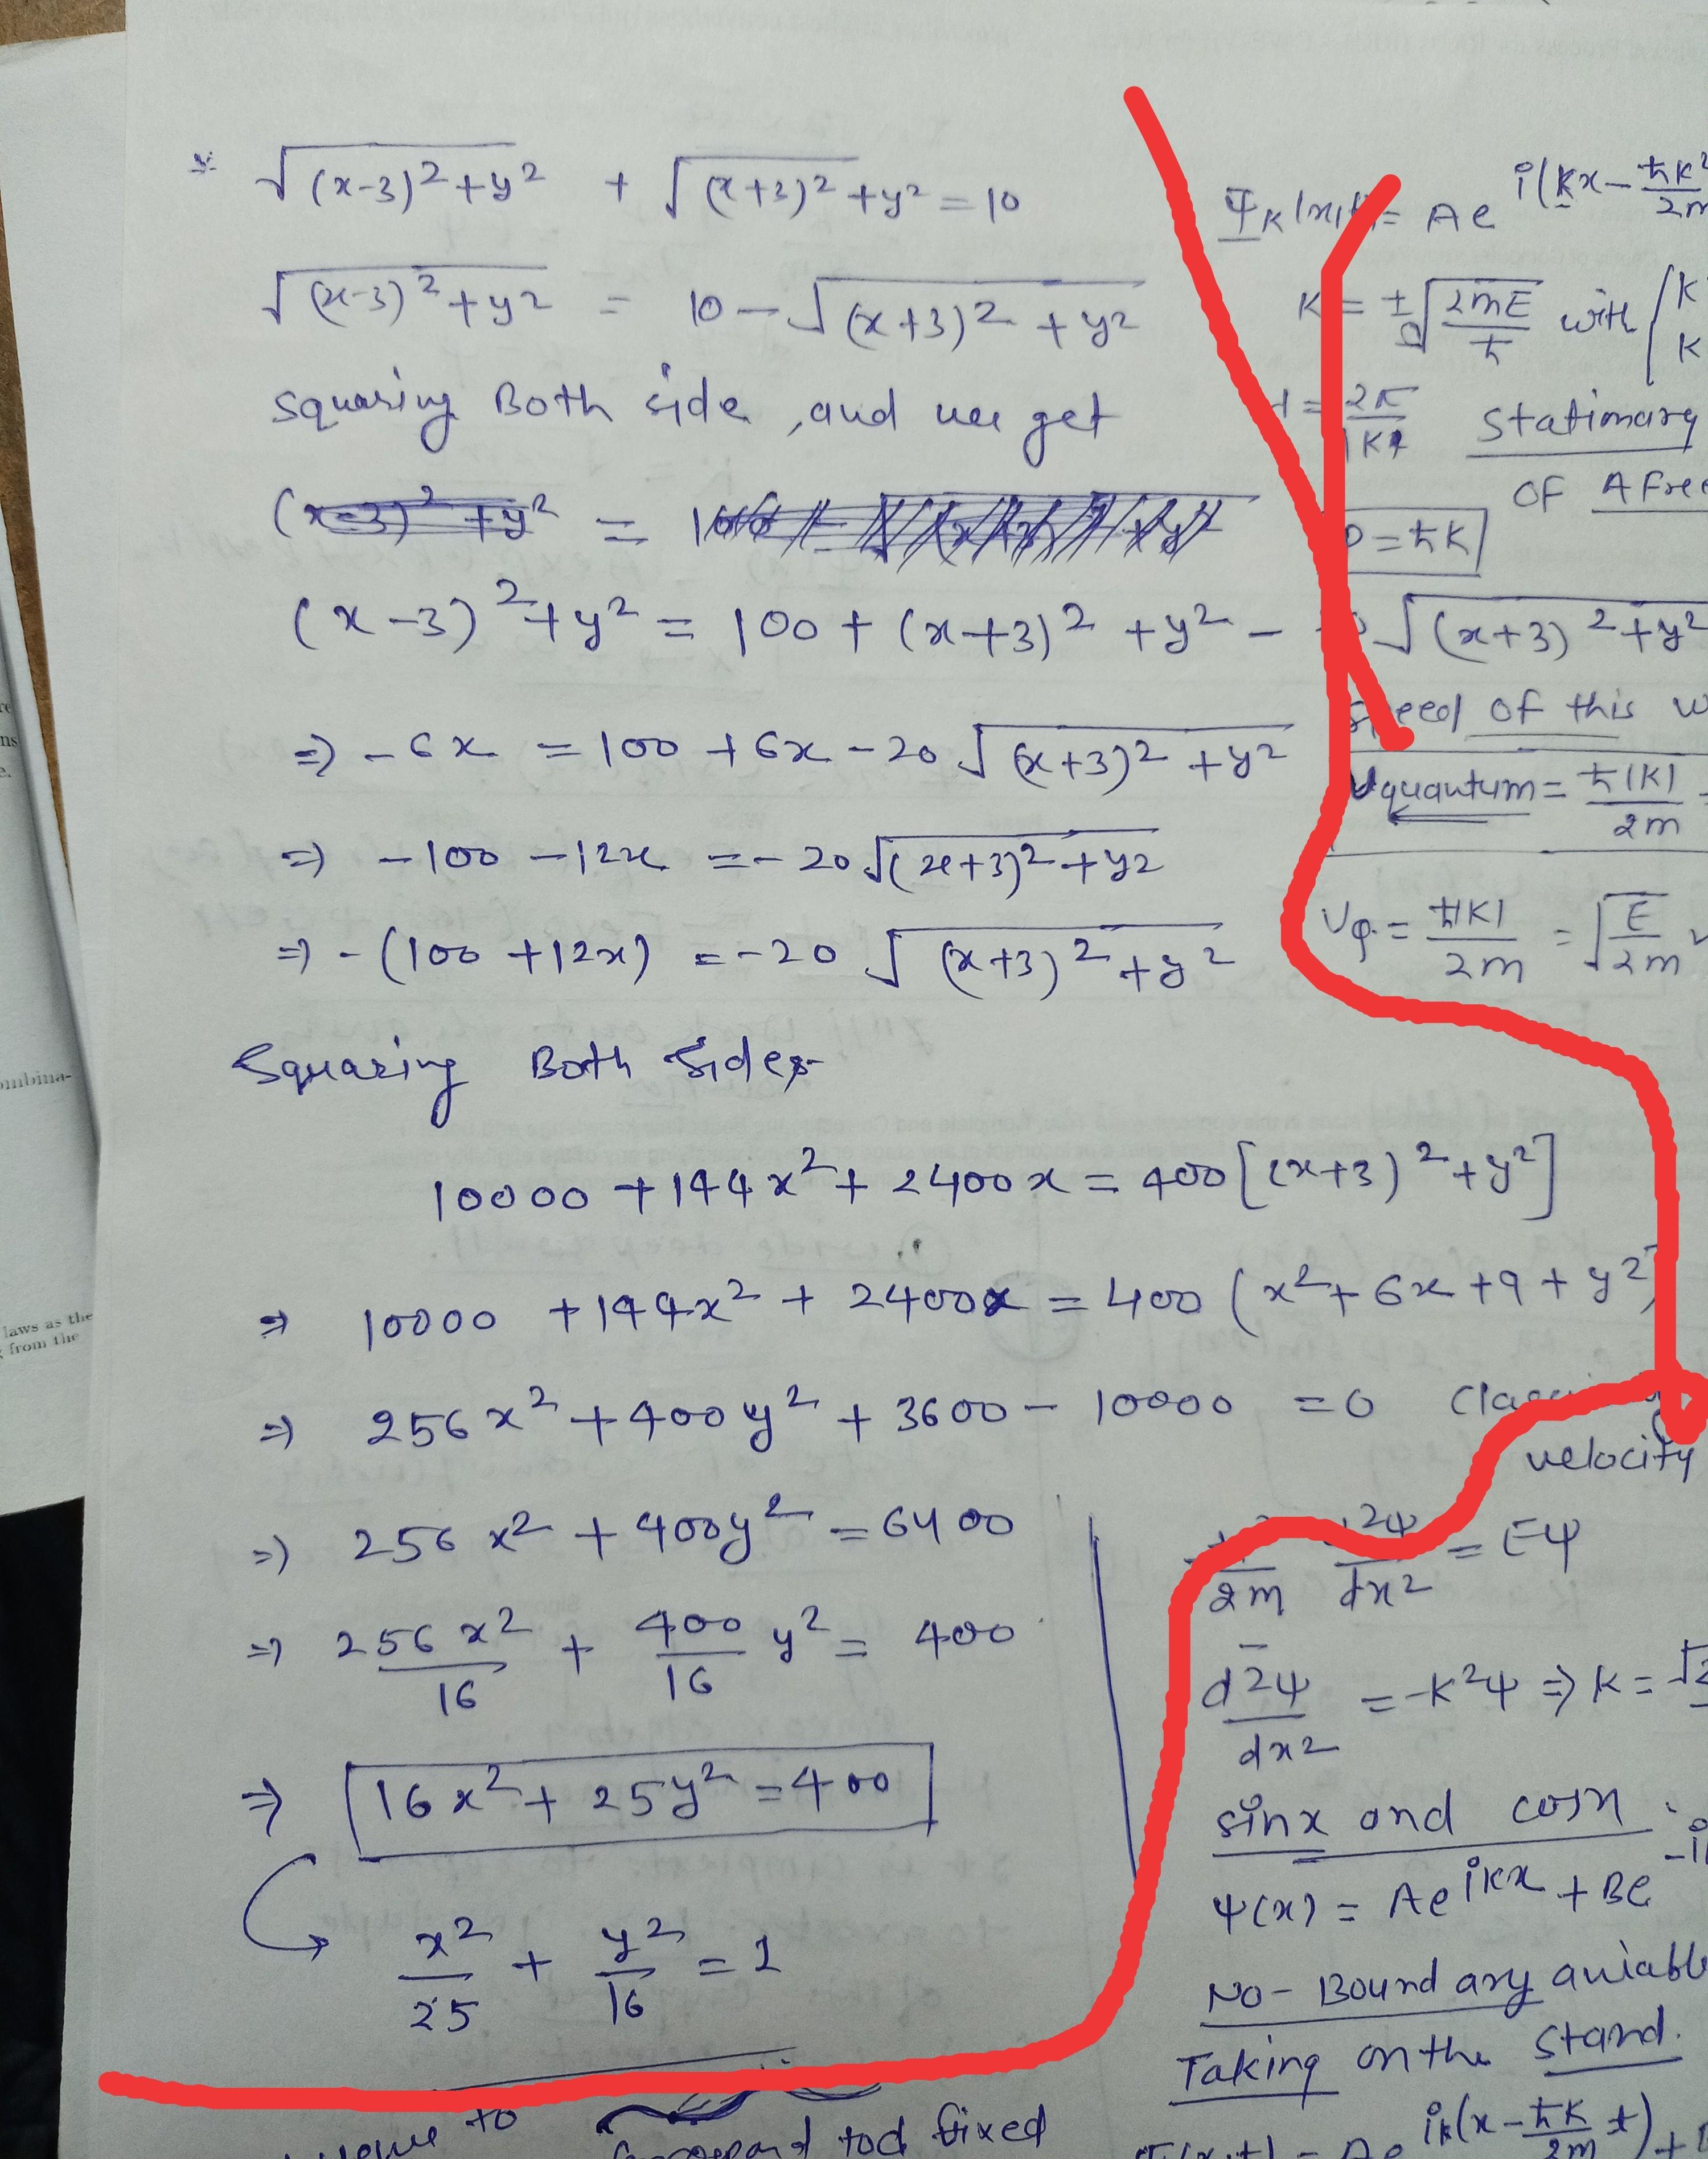 √((x-3)²+y²) + √((x+3)²+y²) = 10
√((x-3)²+y²) = 10 - √((x+3)²+y²)
squaring Both side, and we get
(x-3)²+y² =
(x-3)²+y² = 100 + (x+3)²+y² - √((x+3)²+y²
⇒ -6x = 100 + 6x - 20√((x+3)²+y²)
⇒ -100 -12x = -20√((x+3)²+y²)
⇒ -(100+12x) = -20√((x+3)²+y²)
Squaring Both Sides
10000 + 144x² + 2400x = 400[(x+3)²+y²]
⇒ 10000 + 144x² + 2400x = 400(x²+6x+9+y²)
⇒ 256x² + 400y² + 3600 - 10000 = 0
⇒ 256x² + 400y² = 6400
⇒ 256x²/16 + 400/16 y² = 400
⇒ 16x² + 25y² = 400
x²/25 + y²/16 = 1
to
tod fixed
Ψ_K(x,t) = Ae^i(kx - ħk²/2m
K = ±√(2mE)/ħ with (K
K
= 2π/|K|
Stationary
OF A free
p = ħK
speed of this w
Vquantum = ħ|K|/2m
Vq = ħ|K|/2m = √(E/2m)
velocity
2m dx² = Eψ
d²ψ/dx² = -K²ψ ⇒ K = √2
sinx and cosx
ψ(x) = Ae^ikx + Be^-i
No-Boundary
Taking on the stand.
Ψ(x,t) = Ae^ik(x - ħk/2m t) +
ombina-
laws as the
from the
ns